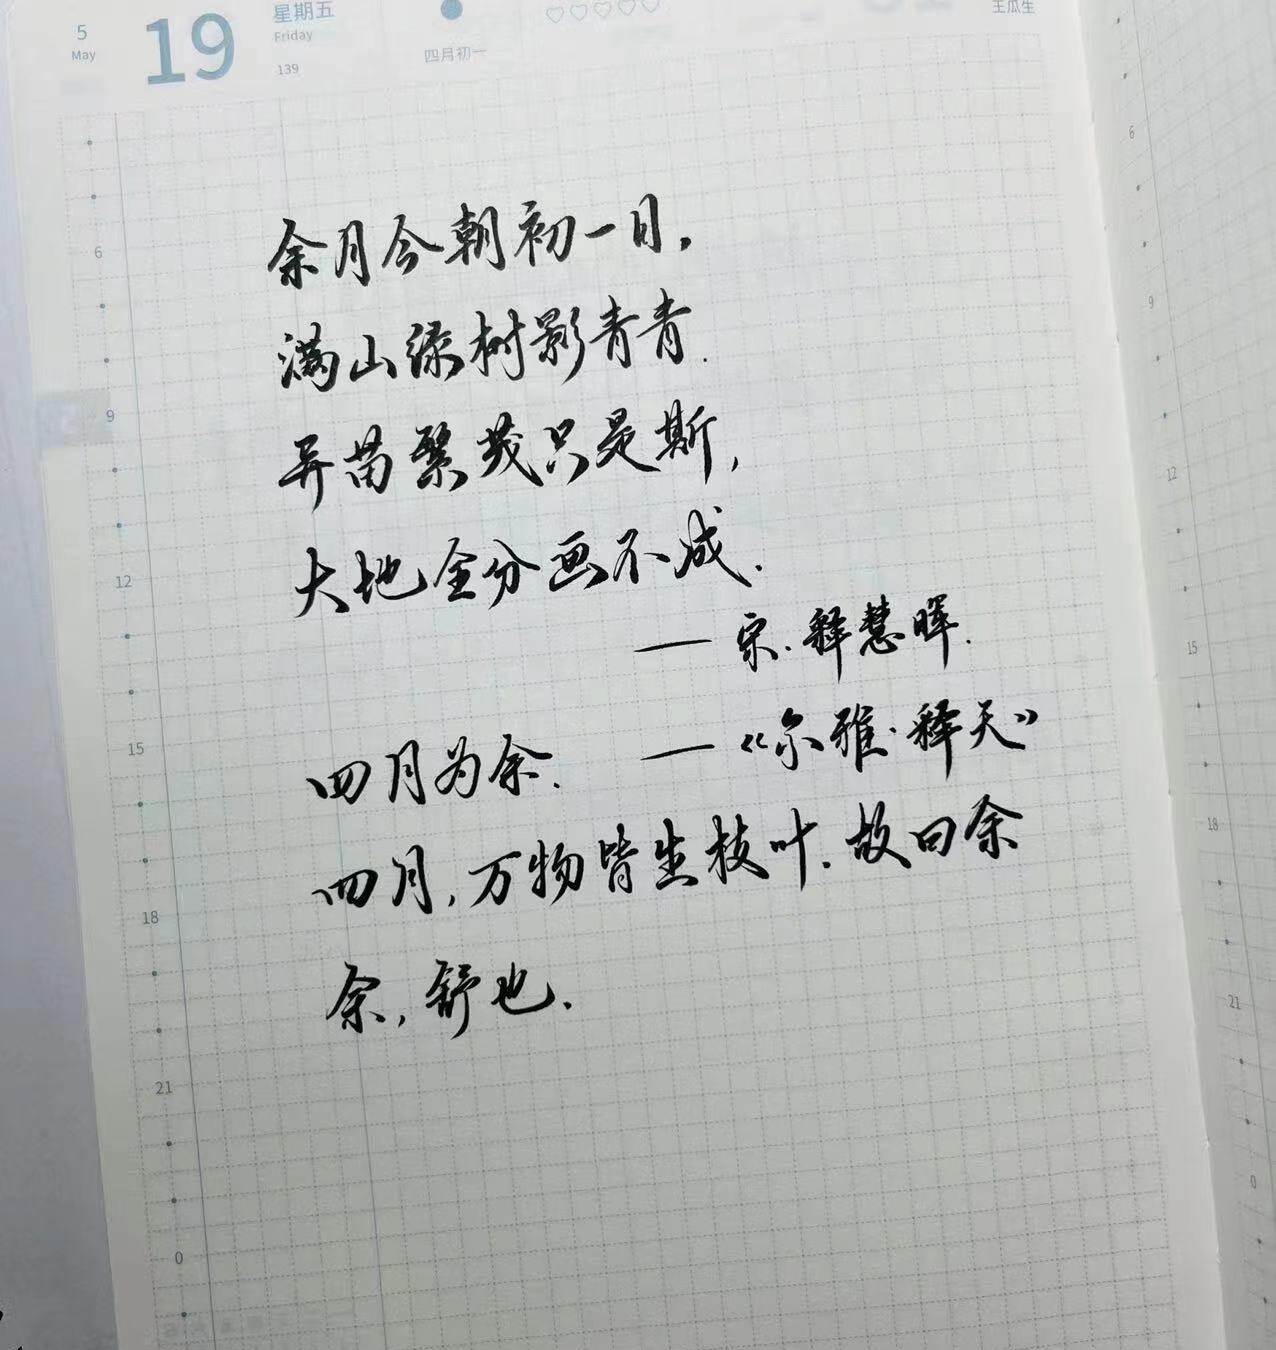 5
May
19
星期五
Friday
139
四月初一
♡♡♡♡♡
王瓜生
余月今朝初一日，
满山绿树影青青.
异苗繁茂只是斯，
大地全分画不成.
—— 宋·释慧晖.
四月为余. ——《尔雅·释天》
四月，万物皆生枝叶. 故曰余
余，舒也.
6
9
12
15
18
21
0
6
9
12
15
18
21
0